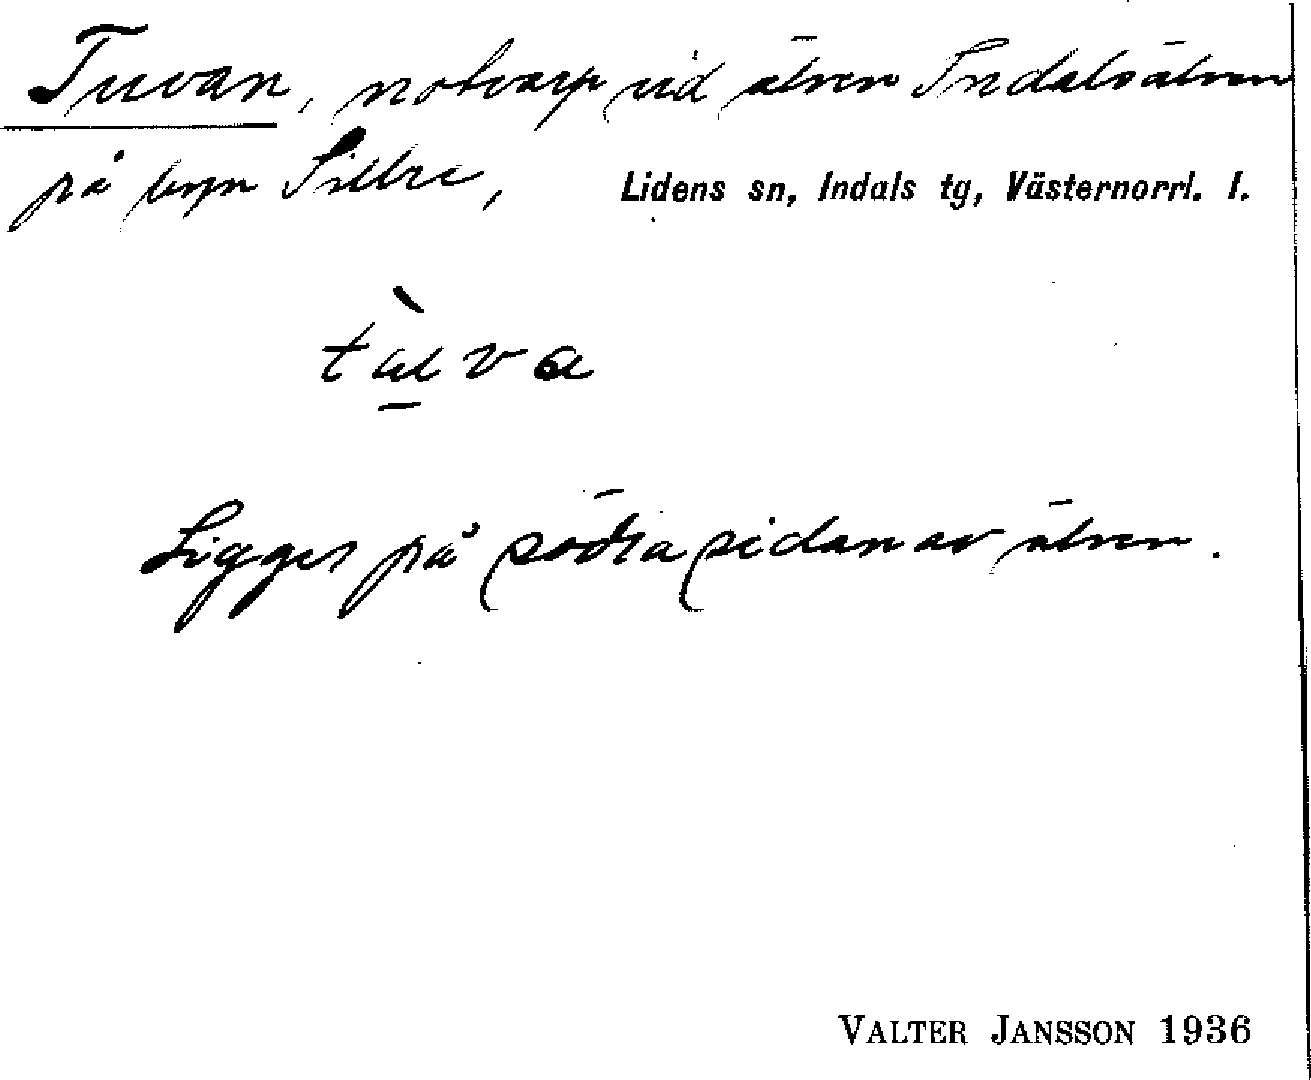 Tuvan, notvarp vid älven Indalsälven
på byn Sillre, Lidens sn, Indals tg, Västernorrl. l.
tù̱va
Ligger på södra sidan av älven.
VALTER JANSSON 1936